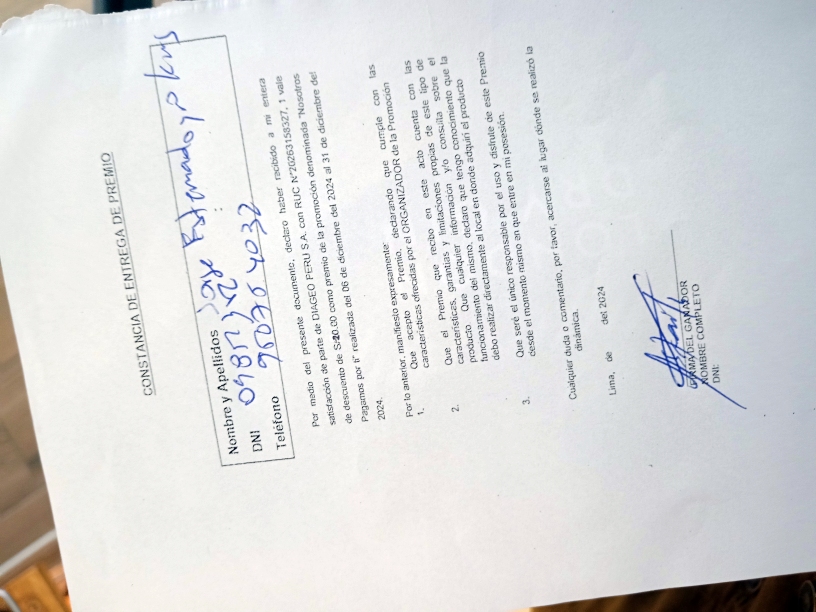 CONSTANCIA DE ENTREGA DE PREMIO
Nombre y Apellidos
DNI
Teléfono 960764032
Por medio del presente documento, declaro haber recibido a mi entera
satisfacción de parte de DIAGEO PERU S.A. con RUC N°20263158327, 1 vale
de descuento de S/20.00 como premio de la promoción denominada "Nosotros
Pagamos por ti" realizada del 06 de diciembre del 2024 al 31 de diciembre del
2024.
Por lo anterior, manifiesto expresamente:
1. Que acepto el Premio, declarando que cumple con las
características ofrecidas por el ORGANIZADOR de la Promoción
2. Que el Premio que recibo en este acto cuenta con las
características, garantías y limitaciones propias de este tipo de
producto. Que cualquier información y/o consulta sobre el
funcionamiento del mismo, declaro que tengo conocimiento que la
debo realizar directamente al local en donde adquirí el producto
3. Que seré el único responsable por el uso y disfrute de este Premio
desde el momento mismo en que entre en mi posesión.
Cualquier duda o comentario, por favor, acercarse al lugar donde se realizó la
dinámica.
Lima, de del 2024
FIRMA DEL GANADOR
NOMBRE COMPLETO
DNI: